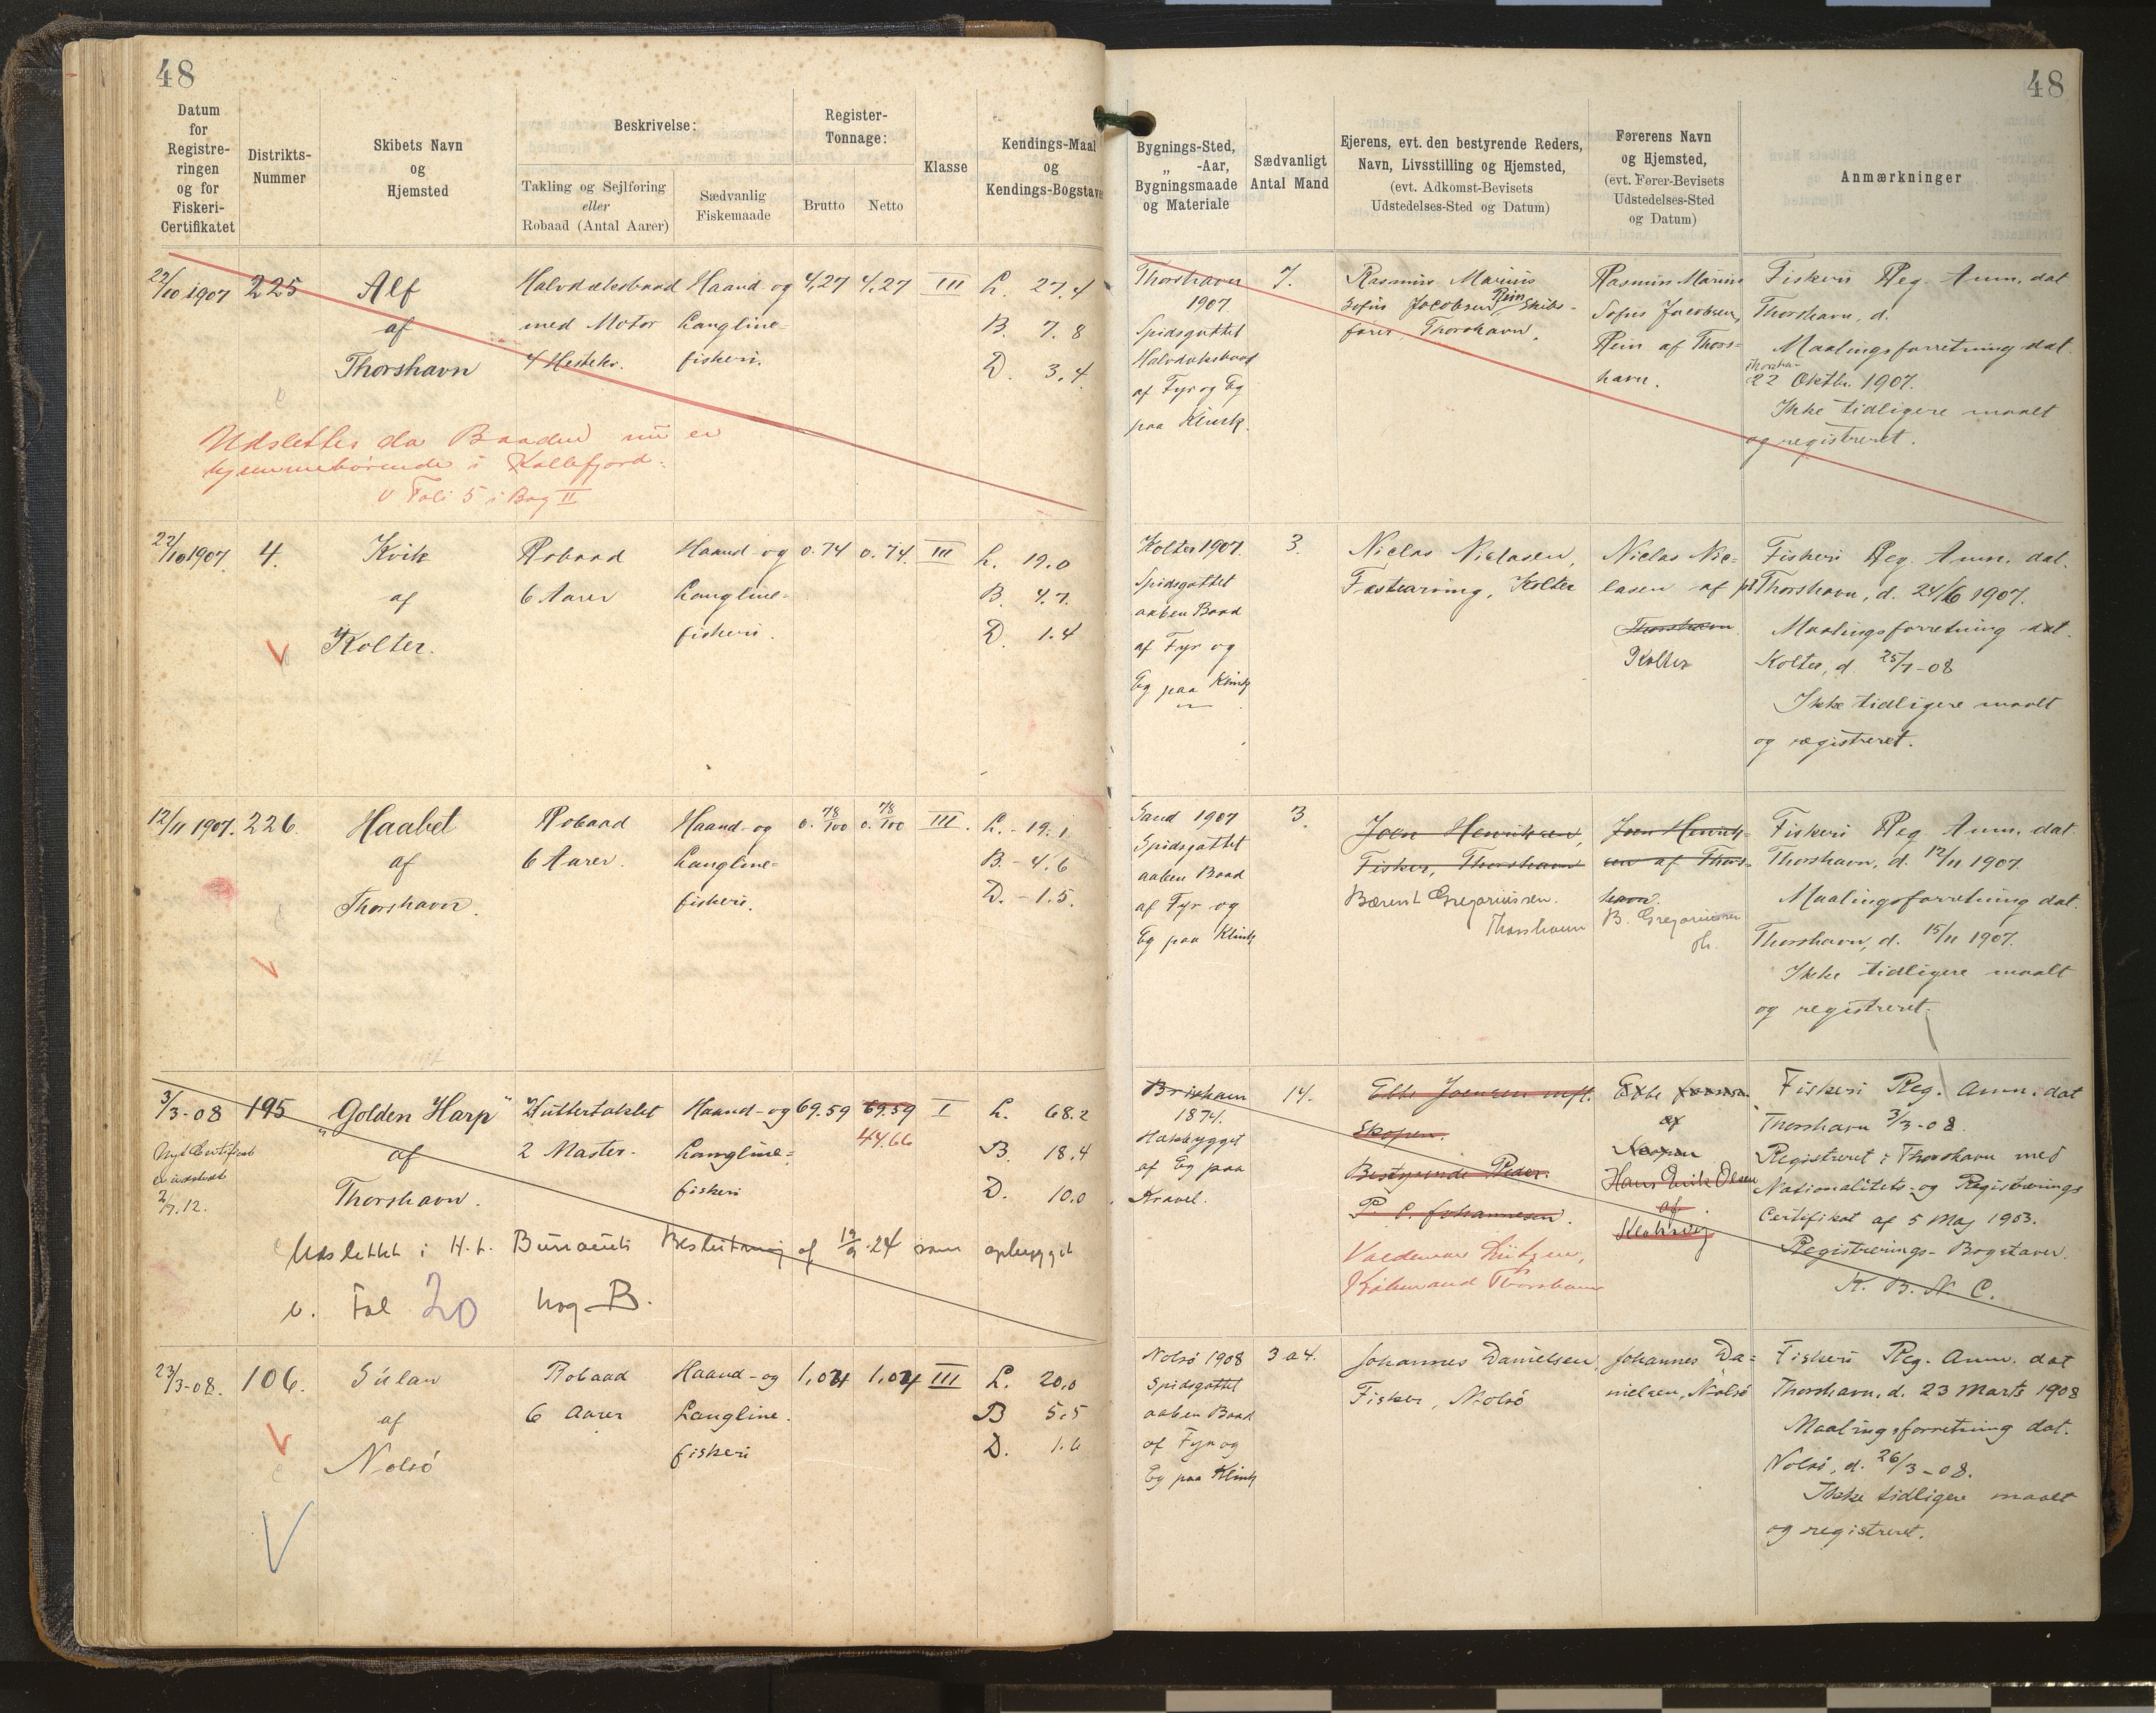 48
48
Datum
for
Registre-
ringen
og for
Fiskeri-
Certifikatet
Distrikts-
Nummer
Skibets Navn
og
Hjemsted
Beskrivelse:
Takling og Sejlføring
eller
Robaad (Antal Aarer)
Sædvanlig
Fiskemaade
Register-
Tonnage:
Brutto
Netto
Klasse
Kendings-Maal
og
Kendings-Bogstaver
Bygnings-Sted,
„ -Aar,
Bygningsmaade
og Materiale
Sædvanligt
Antal Mand
Ejerens, evt. den bestyrende Reders,
Navn, Livsstilling og Hjemsted,
(evt. Adkomst-Bevisets
Udstedelses-Sted og Datum)
Førerens Navn
og Hjemsted,
(evt. Fører-Bevisets
Udstedelses-Sted
og Datum)
Anmærkninger
22/10 1907
225
Alf
af
Thorshavn
Halvdæksbaad
med Motor
4 Hestekr.
Haand- og
Langline-
fiskeri.
4,27
4,27
III
L. 27,4
B. 7.8
D. 3,4
Thorshavn
1907
Spidsgattet
Halvdæksbaad
af Fyr og Eg
paa Klink.
7.
Rasmus Marius
Sofus Jacobsen Rein Skibs-
fører, Thorshavn.
Rasmus Marius
Sofus Jacobsen,
Rein af Thors-
havn.
Fiskeri Reg. Anm. dat
Thorshavn, d.
Maalingsforretning dat.
Thorshavn
22 Oktbr. 1907.
Ikke tidligere maalt
og registreret.
Udslettes da Baaden nu er
hjemmehørende i Kollefjord.
v Foli 5 i Bog II
22/10 1907
4.
Kvik
af
Kolter.
Robaad
6 Aarer
Haand- og
Langline-
fiskeri.
0.74
0.74.
III
L. 19.0
B. 4.7.
D. 1.4
Kolter 1907
Spidsgattet
aaben Baad
af Fyr og
Eg paa Klink
3.
Niclas Niclasen,
Fæstearving, Kolter
Niclas Nic-
lasen af
Thorshavn
Kolter
Fiskeri Reg. Anm. dat.
Thorshavn, d. 24/6 1907.
Maalingsforretning dat.
Kolter, d. 25/7-08
Ikke tidligere maalt
og registreret.
12/11 1907.
226
Haabet
af
Thorshavn.
Robaad
6 Aarer.
Haand- og
Langline-
fiskeri.
0. 78/100
0. 78/100
III.
L. - 19.1
B. - 4.6
D. - 1.5.
Sand 1907
Spidsgattet
aaben Baad
af Fyr og
Eg paa Klink
3.
Joen Henriksen,
Fisker, Thorshavn
Bærent Gregoriussen.
Thorshavn
Joen Henrik-
sen af Thors-
havn.
B. Gregoriussen
Th.
Fiskeri Reg. Anm. dat.
Thorshavn, d. 12/11 1907.
Maalingsforretning dat.
Thorshavn, d. 15/11 1907.
Ikke tidligere maalt
og registreret.
3/3-08
195
"Golden Harp"
af
Thorshavn.
Nyt Certifikat
er udstedt
2/7.12.
Kuttertaklet
2 Master.
Haand- og
Langline-
fiskeri
69.59
69.59
44.66
I
L. 68.2
B. 18.4
D. 10.0
Udslettet i H. t. Bureauets Beslutning af 19/9-24 som ophugget
v. Fol 20 bog B.
Brixham
1874.
Hækbygget
af Eg paa
Kravel.
14.
Ebbe Joensen mfl.
Skopen.
Bestyrende Reder.
P. C. Johannesen.
Valdemar Lützen,
Købmand Thorshavn
Ebbe Joensen
af
Skopen
Hans Erik Olsen
af
Klaksvig
Fiskeri Reg. Anm. dat
Thorshavn 3/3-08.
Registreret i Thorshavn med
Nationalitets- og Registrerings
Certifikat af 5 Maj 1903.
Registrerings-Bogstaver.
K. B. N. C.
23/3-08.
106.
Súlan
af
Nolsö
Robaad
6 Aarer
Haand- og
Langline.
fiskeri
1,04
1,04
III
L. 20,0
B 5,5
D. 1.6
Nolsö 1908
Spidsgattet
aaben Baad
af Fyr og
Eg paa Klink
3 a 4.
Johannes Danielsen,
Fisker, Nolsö
Johannes Da-
nielsen, Nolsö
Fiskeri Reg. Anm. dat
Thorshavn, d. 23 Marts 1908
Maalingsforretning dat.
Nolsö, d. 26/3-08.
Ikke tidligere maalt
og registreret.